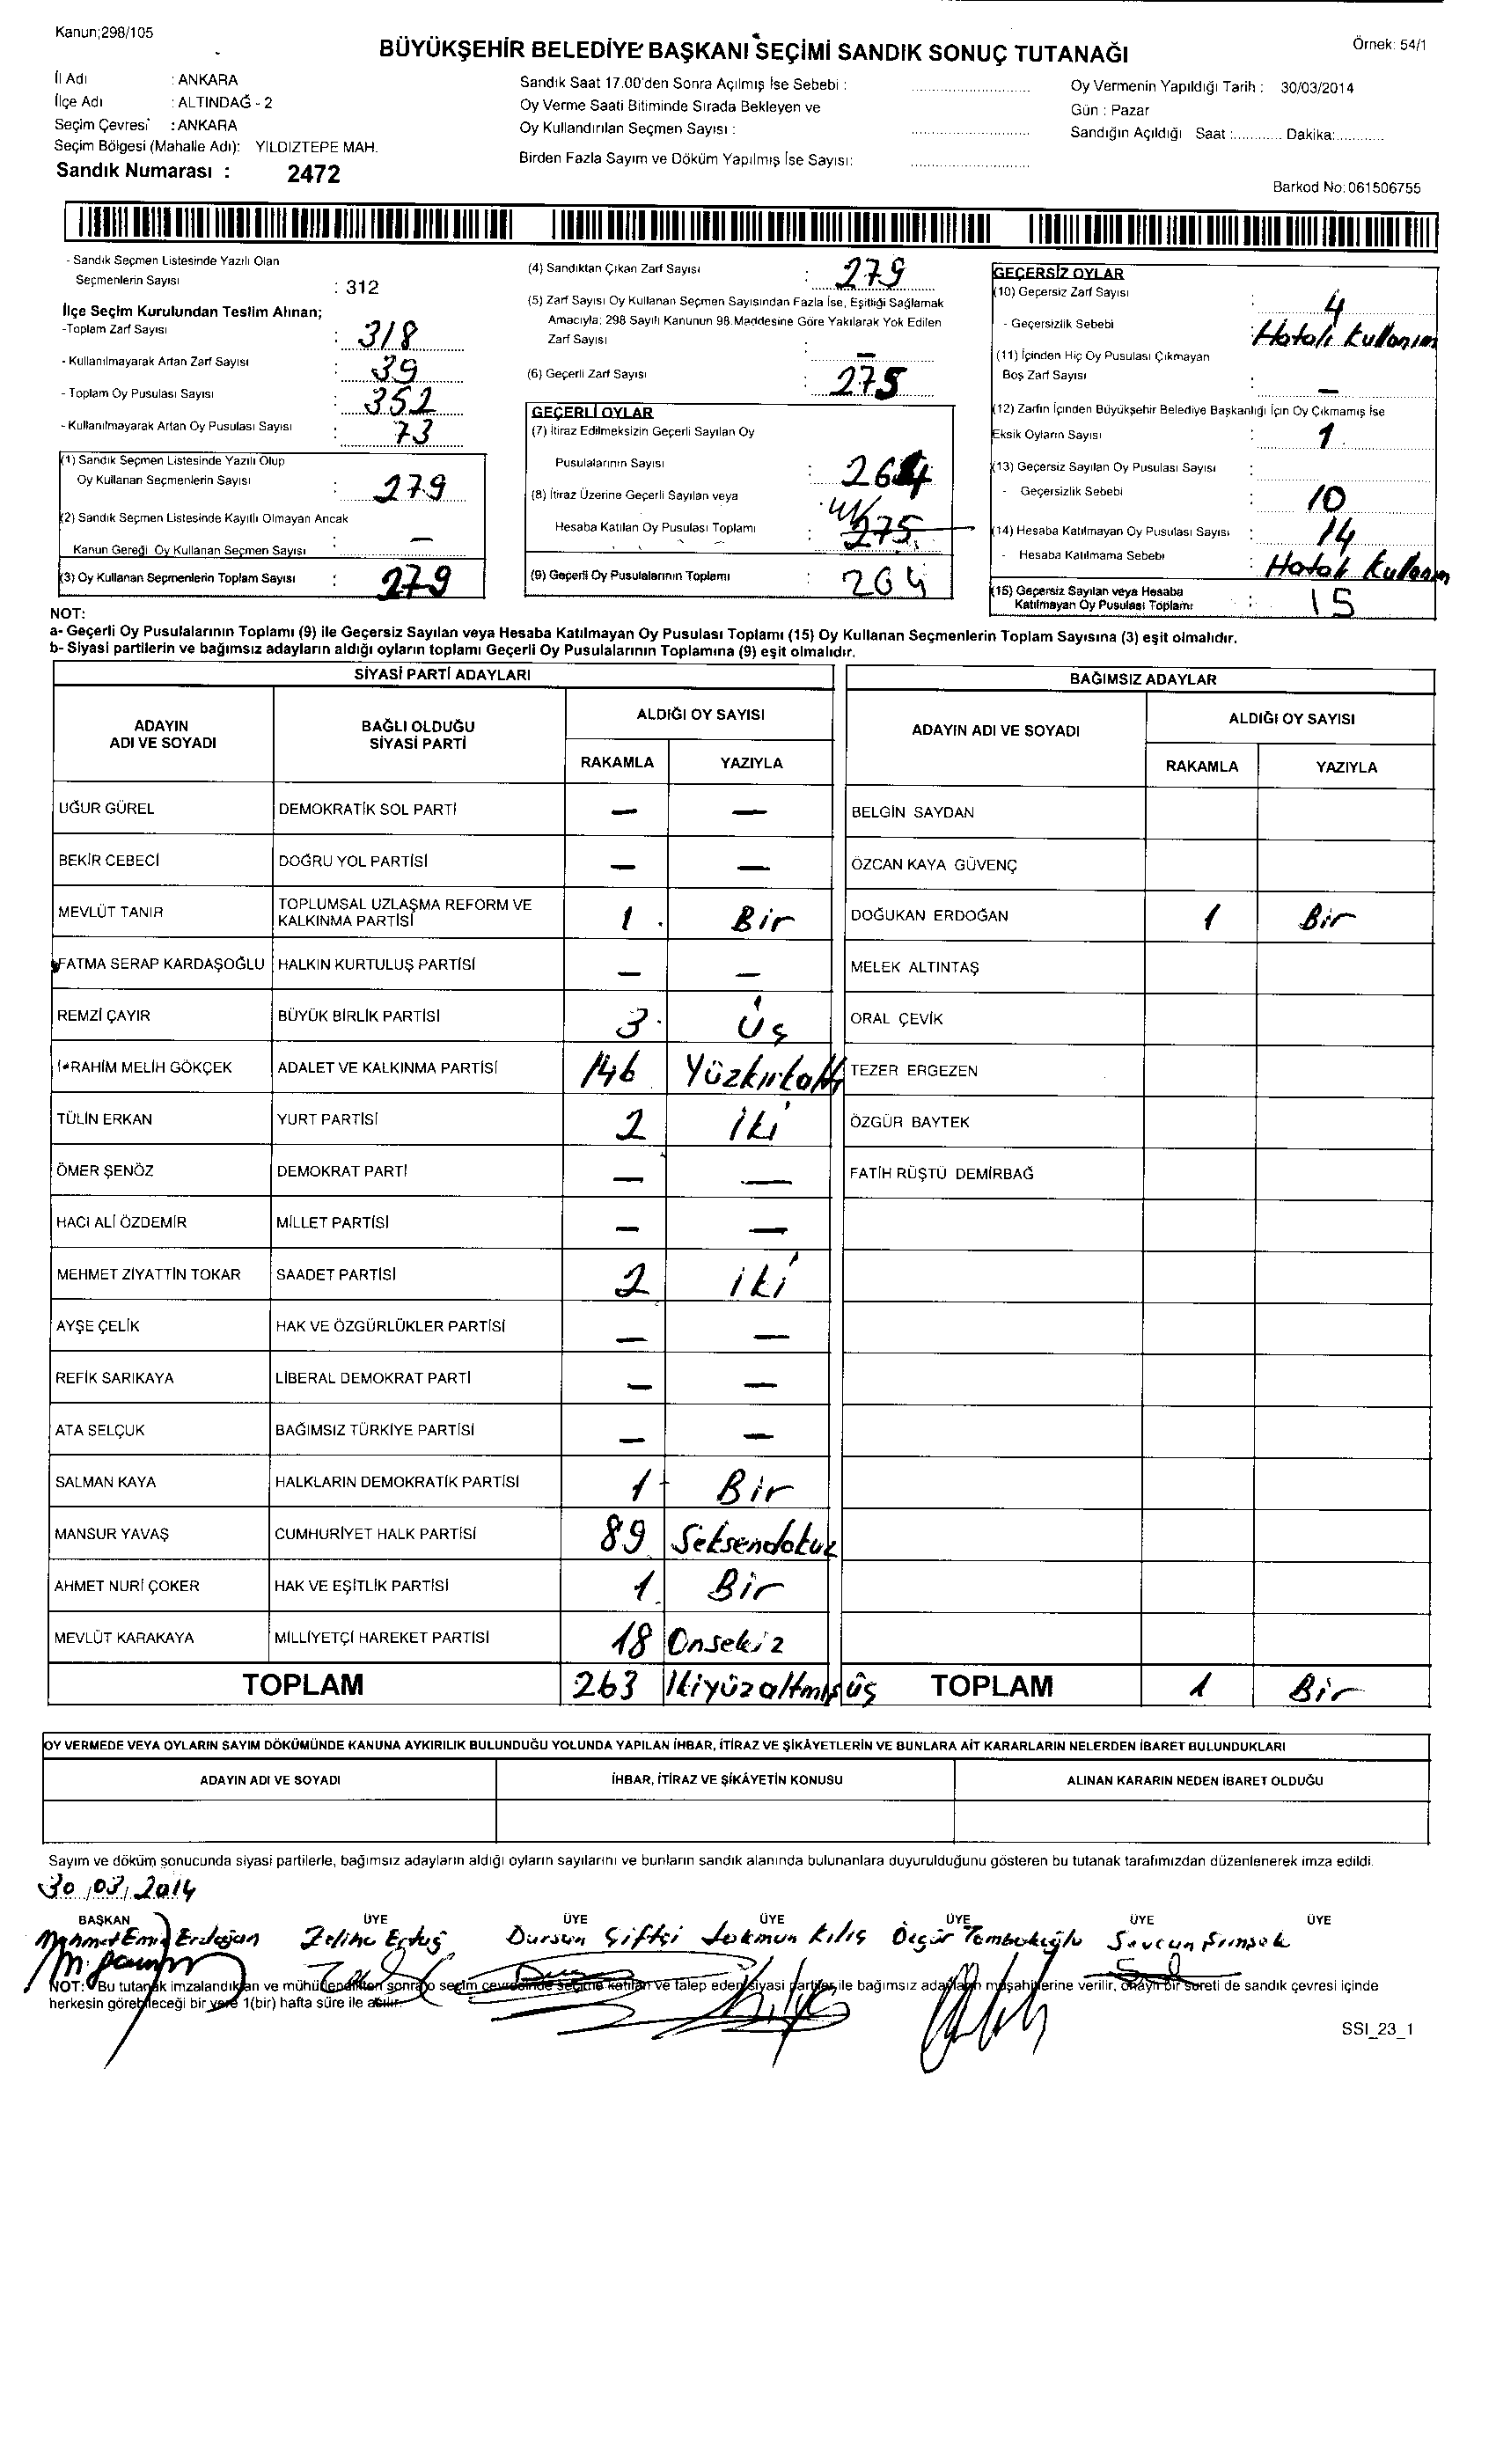 Kanun;298/105
BÜYÜKŞEHİR BELEDİYE BAŞKANI SEÇİMİ SANDIK SONUÇ TUTANAĞI
Örnek: 54/1
İl Adı : ANKARA
İlçe Adı : ALTINDAĞ - 2
Seçim Çevresi : ANKARA
Seçim Bölgesi (Mahalle Adı): YILDIZTEPE MAH.
Sandık Numarası : 2472
Sandık Saat 17.00'den Sonra Açılmış İse Sebebi :
Oy Verme Saati Bitiminde Sırada Bekleyen ve
Oy Kullandırılan Seçmen Sayısı :
Birden Fazla Sayım ve Döküm Yapılmış İse Sayısı:
Oy Vermenin Yapıldığı Tarih : 30/03/2014
Gün : Pazar
Sandığın Açıldığı Saat :............ Dakika:............
Barkod No:061506755
- Sandık Seçmen Listesinde Yazılı Olan
Seçmenlerin Sayısı : 312
İlçe Seçim Kurulundan Teslim Alınan;
-Toplam Zarf Sayısı : 318
- Kullanılmayarak Artan Zarf Sayısı : 39
- Toplam Oy Pusulası Sayısı : 352
- Kullanılmayarak Artan Oy Pusulası Sayısı : 73
(1) Sandık Seçmen Listesinde Yazılı Olup
Oy Kullanan Seçmenlerin Sayısı : 279
(2) Sandık Seçmen Listesinde Kayıtlı Olmayan Ancak
Kanun Gereği Oy Kullanan Seçmen Sayısı : —
(3) Oy Kullanan Seçmenlerin Toplam Sayısı : 279
(4) Sandıktan Çıkan Zarf Sayısı : 279
(5) Zarf Sayısı Oy Kullanan Seçmen Sayısından Fazla İse, Eşitliği Sağlamak
Amacıyla; 298 Sayılı Kanunun 98.Maddesine Göre Yakılarak Yok Edilen
Zarf Sayısı : —
(6) Geçerli Zarf Sayısı : 275
GEÇERLİ OYLAR
(7) İtiraz Edilmeksizin Geçerli Sayılan Oy
Pusulalarının Sayısı : 264
(8) İtiraz Üzerine Geçerli Sayılan veya
Hesaba Katılan Oy Pusulası Toplamı : 275
(9) Geçerli Oy Pusulalarının Toplamı : 264
GEÇERSİZ OYLAR
(10) Geçersiz Zarf Sayısı : 4
- Geçersizlik Sebebi Hatalı kullanım
(11) İçinden Hiç Oy Pusulası Çıkmayan
Boş Zarf Sayısı : —
(12) Zarfın İçinden Büyükşehir Belediye Başkanlığı İçin Oy Çıkmamış İse
Eksik Oyların Sayısı : 1
(13) Geçersiz Sayılan Oy Pusulası Sayısı :
- Geçersizlik Sebebi : 10
(14) Hesaba Katılmayan Oy Pusulası Sayısı : 14
- Hesaba Katılmama Sebebi : Hatalı kullanım
(15) Geçersiz Sayılan veya Hesaba
Katılmayan Oy Pusulası Toplamı : 15
NOT:
a- Geçerli Oy Pusulalarının Toplamı (9) ile Geçersiz Sayılan veya Hesaba Katılmayan Oy Pusulası Toplamı (15) Oy Kullanan Seçmenlerin Toplam Sayısına (3) eşit olmalıdır.
b- Siyasi partilerin ve bağımsız adayların aldığı oyların toplamı Geçerli Oy Pusulalarının Toplamına (9) eşit olmalıdır.
SİYASİ PARTİ ADAYLARI
ADAYIN ADI VE SOYADI
BAĞLI OLDUĞU SİYASİ PARTİ
ALDIĞI OY SAYISI
RAKAMLA YAZIYLA
UĞUR GÜREL DEMOKRATİK SOL PARTİ — —
BEKİR CEBECİ DOĞRU YOL PARTİSİ — —
MEVLÜT TANIR TOPLUMSAL UZLAŞMA REFORM VE KALKINMA PARTİSİ 1 Bir
FATMA SERAP KARDAŞOĞLU HALKIN KURTULUŞ PARTİSİ — —
REMZİ ÇAYIR BÜYÜK BİRLİK PARTİSİ 3 Üç
İ*RAHİM MELİH GÖKÇEK ADALET VE KALKINMA PARTİSİ 146 Yüzkırkaltı
TÜLİN ERKAN YURT PARTİSİ 2 iki
ÖMER ŞENÖZ DEMOKRAT PARTİ — —
HACI ALİ ÖZDEMİR MİLLET PARTİSİ — —
MEHMET ZİYATTİN TOKAR SAADET PARTİSİ 2 iki
AYŞE ÇELİK HAK VE ÖZGÜRLÜKLER PARTİSİ — —
REFİK SARIKAYA LİBERAL DEMOKRAT PARTİ — —
ATA SELÇUK BAĞIMSIZ TÜRKİYE PARTİSİ — —
SALMAN KAYA HALKLARIN DEMOKRATİK PARTİSİ 1 Bir
MANSUR YAVAŞ CUMHURİYET HALK PARTİSİ 89 Seksendokuz
AHMET NURİ ÇOKER HAK VE EŞİTLİK PARTİSİ 1 Bir
MEVLÜT KARAKAYA MİLLİYETÇİ HAREKET PARTİSİ 18 Onsekiz
TOPLAM 263 İkiyüzaltmışüç
BAĞIMSIZ ADAYLAR
ADAYIN ADI VE SOYADI
ALDIĞI OY SAYISI
RAKAMLA YAZIYLA
BELGİN SAYDAN
ÖZCAN KAYA GÜVENÇ
DOĞUKAN ERDOĞAN 1 Bir
MELEK ALTINTAŞ
ORAL ÇEVİK
TEZER ERGEZEN
ÖZGÜR BAYTEK
FATİH RÜŞTÜ DEMİRBAĞ
TOPLAM 1 Bir
OY VERMEDE VEYA OYLARIN SAYIM DÖKÜMÜNDE KANUNA AYKIRILIK BULUNDUĞU YOLUNDA YAPILAN İHBAR, İTİRAZ VE ŞİKÂYETLERİN VE BUNLARA AİT KARARLARIN NELERDEN İBARET BULUNDUKLARI
ADAYIN ADI VE SOYADI İHBAR, İTİRAZ VE ŞİKÂYETİN KONUSU ALINAN KARARIN NEDEN İBARET OLDUĞU
Sayım ve döküm sonucunda siyasi partilerle, bağımsız adayların aldığı oyların sayılarını ve bunların sandık alanında bulunanlara duyurulduğunu gösteren bu tutanak tarafımızdan düzenlenerek imza edildi.
30/03/2014
BAŞKAN ÜYE ÜYE ÜYE ÜYE ÜYE ÜYE
Mehmet Emin Erdoğan Zeliha Ertuş Dursun Çiftçi Lokman Kılıç Özgür Sevcan Şimşek
NOT: Bu tutanak imzalandıktan ve mühürlendikten sonra o seçim çevresinde seçime katılan ve talep eden siyasi partiler ile bağımsız adayların müşahitlerine verilir, onaylı bir sureti de sandık çevresi içinde
herkesin görebileceği bir yere 1(bir) hafta süre ile asılır.
SSI_23_1